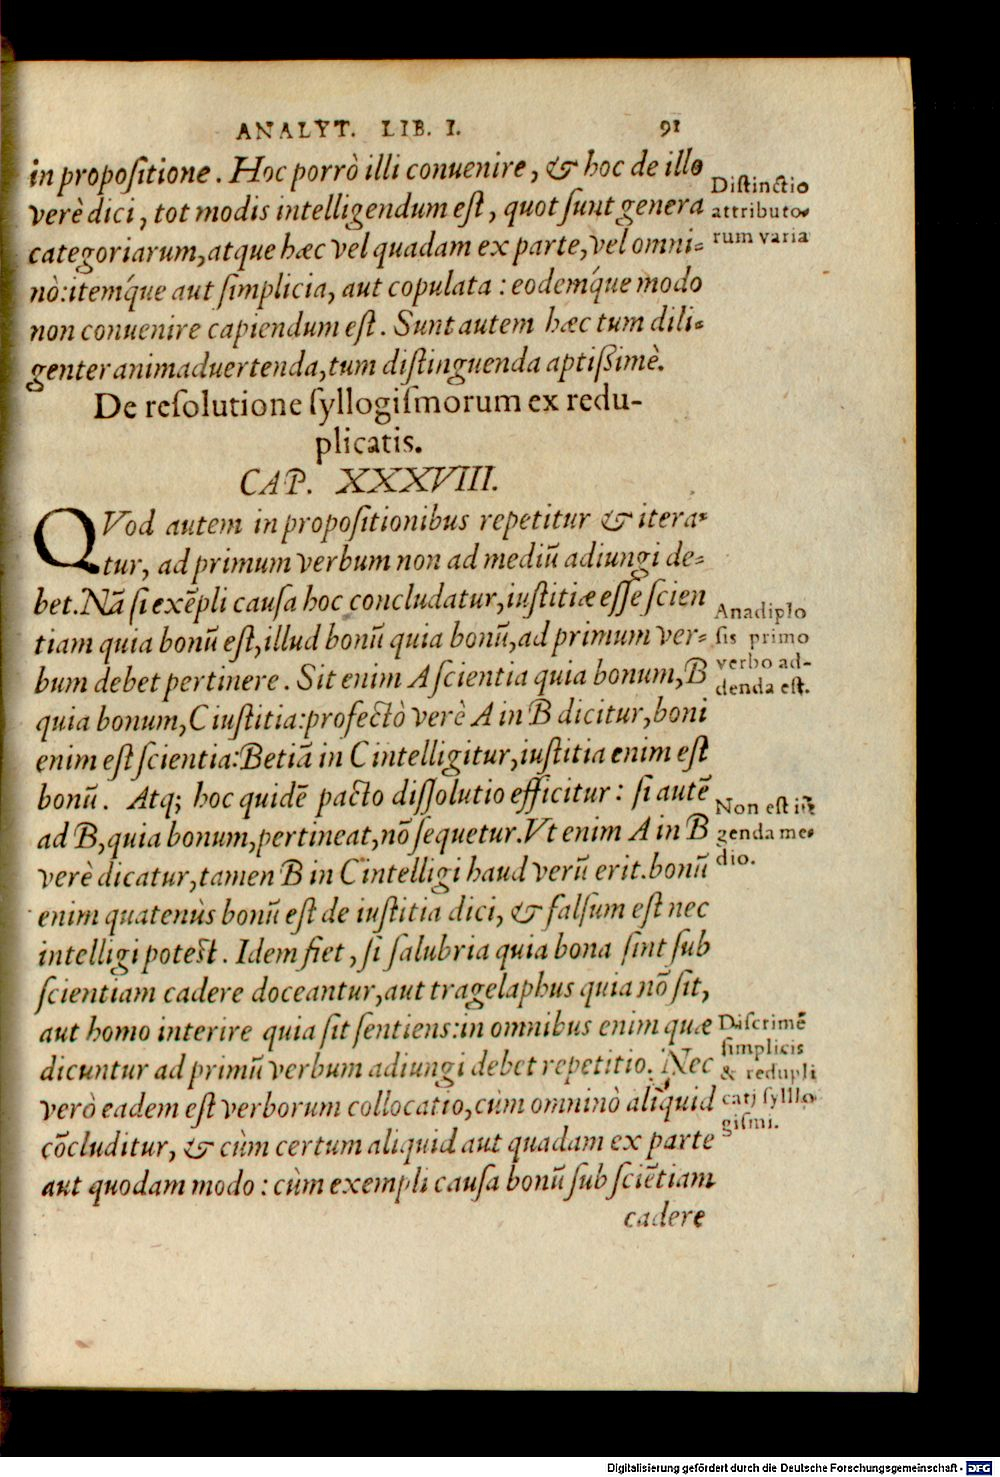 ANALYT. LIB. I. 91
in propositione. Hoc porrò illi conuenire, & hoc de illo
verè dici, tot modis intelligendum est, quot sunt genera
categoriarum, atque hæc vel quadam ex parte, vel omni-
nò: itemq́ue aut simplicia, aut copulata: eodemq́ue modo
non conuenire capiendum est. Sunt autem hæc tum dili-
genter animaduertenda, tum distinguenda aptißimè.
Distinctio
attributo-
rum varia
De resolutione syllogismorum ex redu-
plicatis.
CAP. XXXVIII.
QVod autem in propositionibus repetitur & itera-
tur, ad primum verbum non ad mediũ adiungi de-
bet. Nã si exẽpli causa hoc concludatur, iustitiæ esse scien
tiam quia bonũ est, illud bonũ quia bonũ, ad primum ver-
bum debet pertinere. Sit enim A scientia quia bonum, B
quia bonum, C iustitia: profectò verè A in B dicitur, boni
enim est scientia: B etiã in C intelligitur, iustitia enim est
bonũ. Atq; hoc quidẽ pacto dissolutio efficitur: si autẽ
ad B, quia bonum, pertineat, nõ sequetur. Vt enim A in B
verè dicatur, tamen B in C intelligi haud verũ erit. bonũ
enim quatenùs bonũ est de iustitia dici, & falsum est nec
intelligi potest. Idem fiet, si salubria quia bona sint sub
scientiam cadere doceantur, aut tragelaphus quia nõ sit,
aut homo interire quia sit sentiens: in omnibus enim quæ
dicuntur ad primũ verbum adiungi debet repetitio. Nec
verò eadem est verborum collocatio, cùm omninò aliquid
cõcluditur, & cùm certum aliquid aut quadam ex parte
aut quodam modo: cùm exempli causa bonũ sub sciẽtiam
cadere
Anadiplo
sis primo
verbo ad-
denda est.
Non est iũ
genda me-
dio.
Discrimẽ
simplicis
& redupli
cati sylllo
gismi.
Digitalisierung gefördert durch die Deutsche Forschungsgemeinschaft - DFG